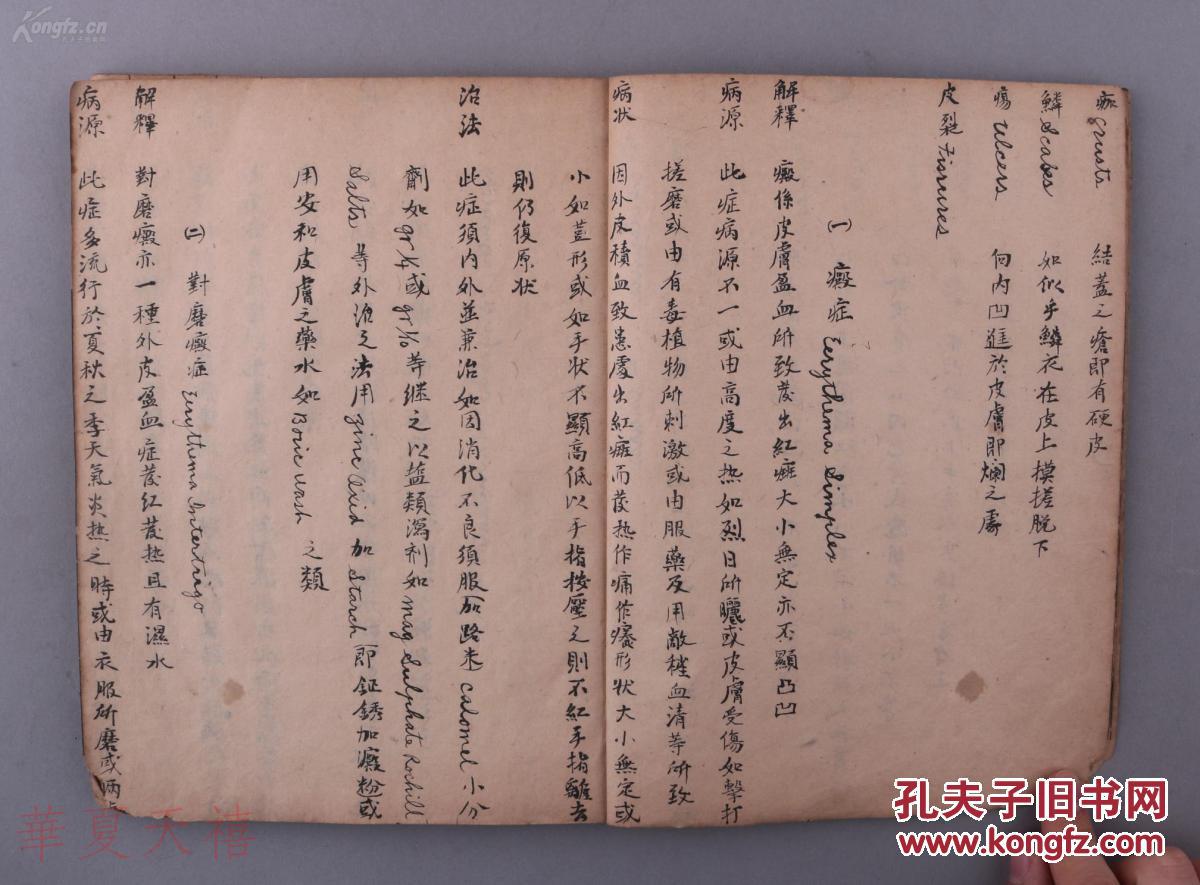 痂 grusts 結蓋之瘡即有硬皮
鱗 Scabs 如似乎鱗衣在皮上模搓脫下
瘍 ulcers 向內凹進於皮膚即爛之處
皮裂 Fissures
(一) 癍症 Eerythema Simplex
解釋 癍係皮膚盈血所致發出紅癍大小無定亦不顯凸凹
病源 此症病源不一或由高度之热如烈日所曬或皮膚受傷如擊打
搓磨或由有毒植物所刺激或由服藥及用敵桎血清等所致
病狀 因外皮積血致患處出紅癍而發热作痛作癢形狀大小無定或
小如荳形或如手状不顯高低以手指按壓之則不紅手指離去
則仍復原狀
治法 此症須內外並兼治如因消化不良須服加路米 Calomel 小分
劑如 gr ¼ 或 gr 1/10 等继之以盐類瀉剂如 mag Sulphate Rochill
Salts 等外治之法用 zinc oxid 加 Starch 即鉦銹加澱粉或
用安和皮膚之藥水如 Boric wash 之類
(二) 對磨癍症 Erythema Intertrigo
解釋 對磨癍亦一種外皮盈血症發紅發热且有濕水
病源 此症多流行於夏秋之季天氣炎热之時或由衣服所磨或兩
Kongfz.cn
孔夫子旧书网
www.kongfz.com
華夏天禧